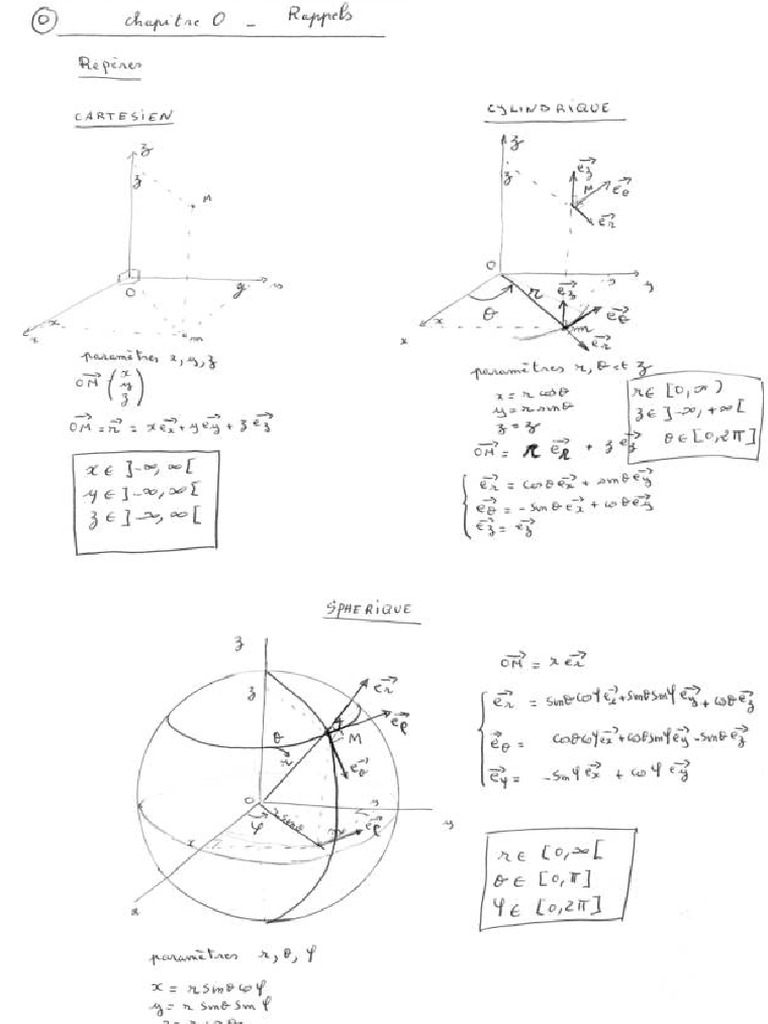 0 chapitre 0 - Rappels
Repères
CARTESIEN
z
z
M
O
y
y
x
x
m
paramètres x, y, z
OM→ (x y z)
OM→ = r→ = x ex→ + y ey→ + z ez→
x ∈ ]-∞, ∞[
y ∈ ]-∞, ∞[
z ∈ ]-∞, ∞[
CYLINDRIQUE
z
z
ez→
M
eθ→
er→
O
r
y
y
ez→
θ
x
x
m
eθ→
er→
paramètres r, θ et z
x = r cosθ
y = r sinθ
z = z
OM→ = r er→ + z ez→
r ∈ [0, ∞)
z ∈ ]-∞, +∞[
θ ∈ [0, 2π]
er→ = cosθ ex→ + sinθ ey→
eθ→ = -sinθ ex→ + cosθ ey→
ez→ = ez→
SPHERIQUE
z
z
er→
eφ→
M
θ
r
eθ→
O
φ
r sinθ
m
eφ→
y
y
x
x
OM→ = r er→
er→ = sinθ cosφ ex→ + sinθ sinφ ey→ + cosθ ez→
eθ→ = cosθ cosφ ex→ + cosθ sinφ ey→ - sinθ ez→
eφ→ = -sinφ ex→ + cosφ ey→
r ∈ [0, ∞[
θ ∈ [0, π]
φ ∈ [0, 2π]
paramètres r, θ, φ
x = r sinθ cosφ
y = r sinθ sinφ
z = r cosθ